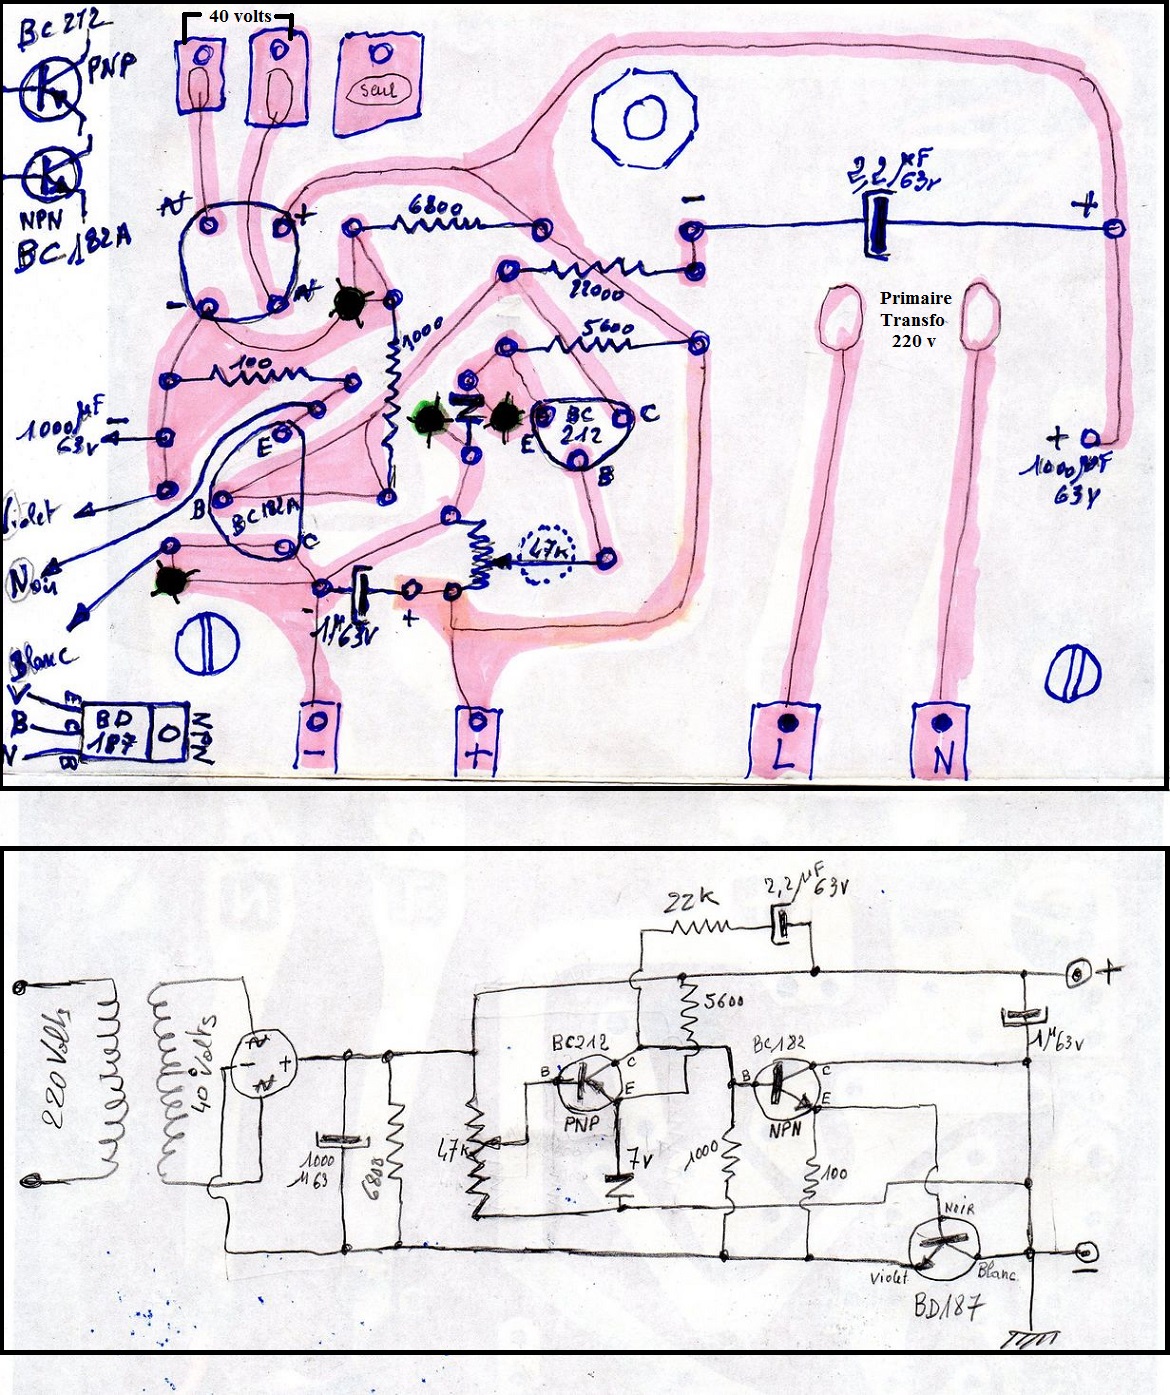 BC 212
PNP
NPN
BC 182A
40 volts
seul
+
-
6800
2,2 µF
63v
-
+
22000
5600
1000
100
1000 µF
63v
-
E
B
C
BC 182A
BC
212
E
B
C
47K
Violet
Noir
Blanc
-
1µ 63v
+
Primaire
Transfo
220 v
+
1000 µF
63v
V
B
N
E
C
B
BD
187
NPN
-
+
L
N
22K
2,2 µF
63v
5600
+
220 Volts
40 Volts
-
+
1000
µ 63
6800
47K
BC212
B
C
E
PNP
7v
1000
BC182
B
C
E
NPN
100
1µ 63v
NOIR
Violet
Blanc
BD187
-